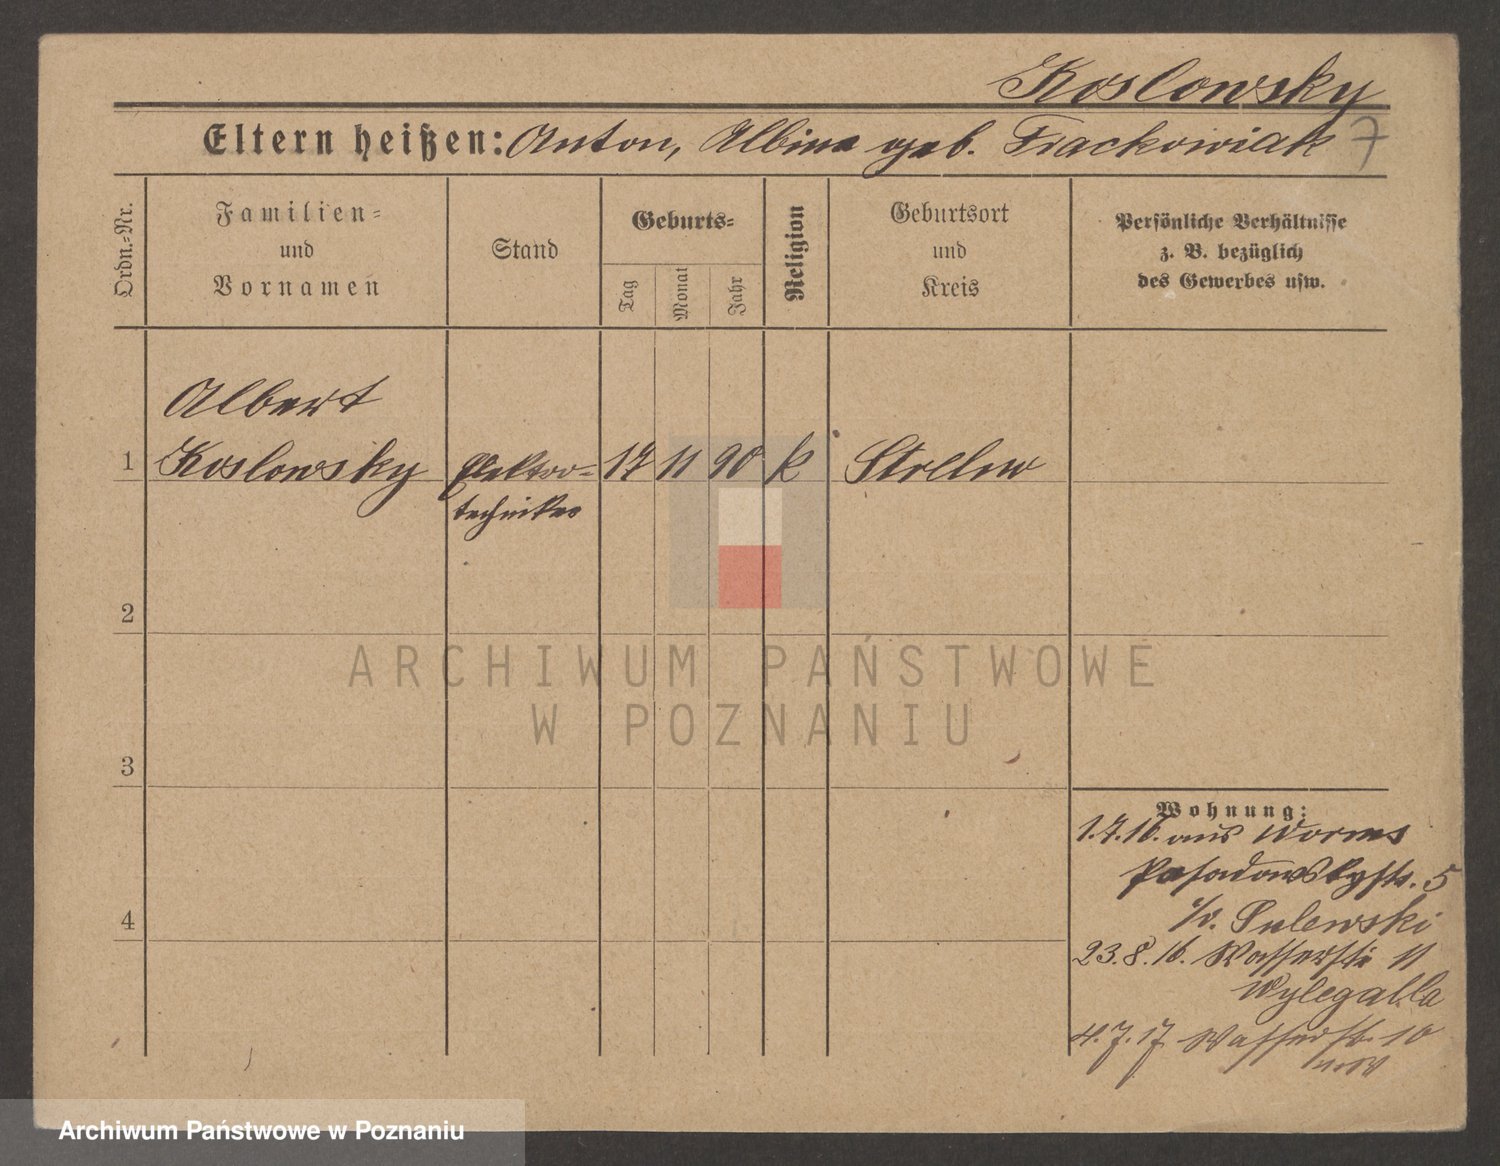 Koslowsky
Eltern heißen: Anton, Albina geb. Frackowiak 7
Ordn.-Nr.
Familien-
und
Vornamen
Stand
Geburts-
Tag
Monat
Jahr
Religion
Geburtsort
und
Kreis
Persönliche Verhältnisse
z. B. bezüglich
des Gewerbes usw.
Albert
1 Koslowsky Elektro- 17 11 90 k Strelno
techniker
2
ARCHIWUM PAŃSTWOWE
W POZNANIU
3
Wohnung:
1.7.16. aus Worms
Posadowskystr. 5
b/ Sulewski
23.8.16. Wasserstr 11
Wylegalla
4
4.7.17 Wasserstr. 10
Archiwum Państwowe w Poznaniu